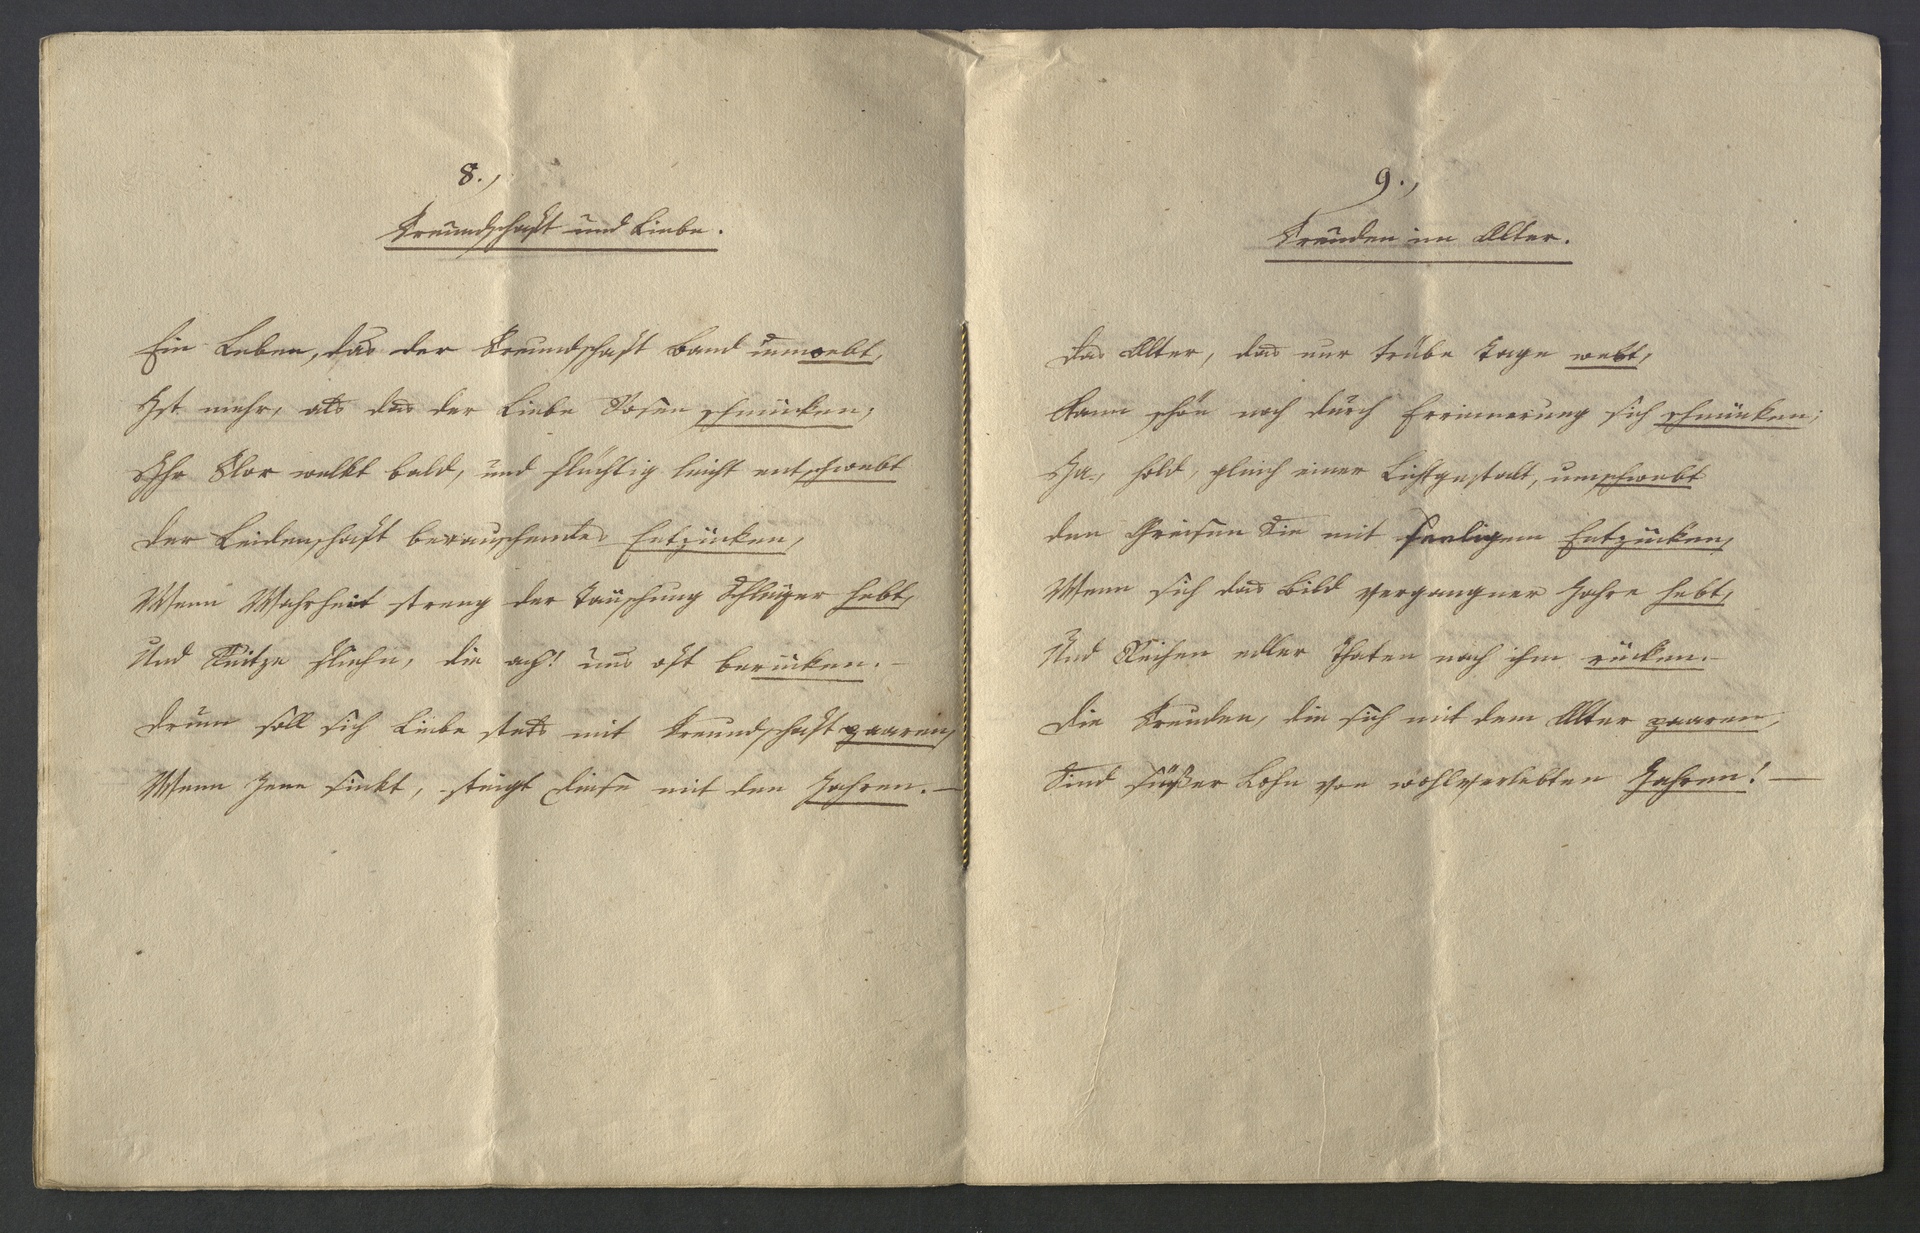 8.,
Freundschaft und Liebe.
Ein Leben, das der Freundschaft Band umwebt,
Ist mehr, als das der Liebe Rosen schmücken;
Ihr Flor welkt bald, und flüchtig leicht entschwebt
Der Leidenschaft berauschendes Entzücken,
Wenn Wahrheit streng der Täuschung Schleyer hebt,
Und Reitze fliehn, die ach! uns oft berücken. –
Drum soll sich Liebe stets mit Freundschaft paaren,
Wenn Jene sinkt, steigt diese mit den Jahren. –
9.,
Freuden im Alter.
Das Alter, das nur trübe Tage webt,
Kann schön noch durch Errinnerung sich schmücken;
Ja, hold, gleich einer Lichtgestalt, umschwebt
den Greisen Sie mit seeligem Entzücken,
Wenn sich das Bild vergangner Jahre hebt,
Und Reihen edler Thaten nach ihm rücken. –
Die Freuden, die sich mit dem Alter paaren,
Sind süßer Lohn von wohlverlebten Jahren! –